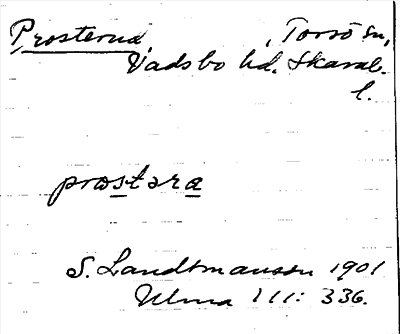 Prosterud, Torsö sn,
Vadsbo hd. Skarab.
l.
prostara
S. Landtmanson 1901
Ulma 111: 336.